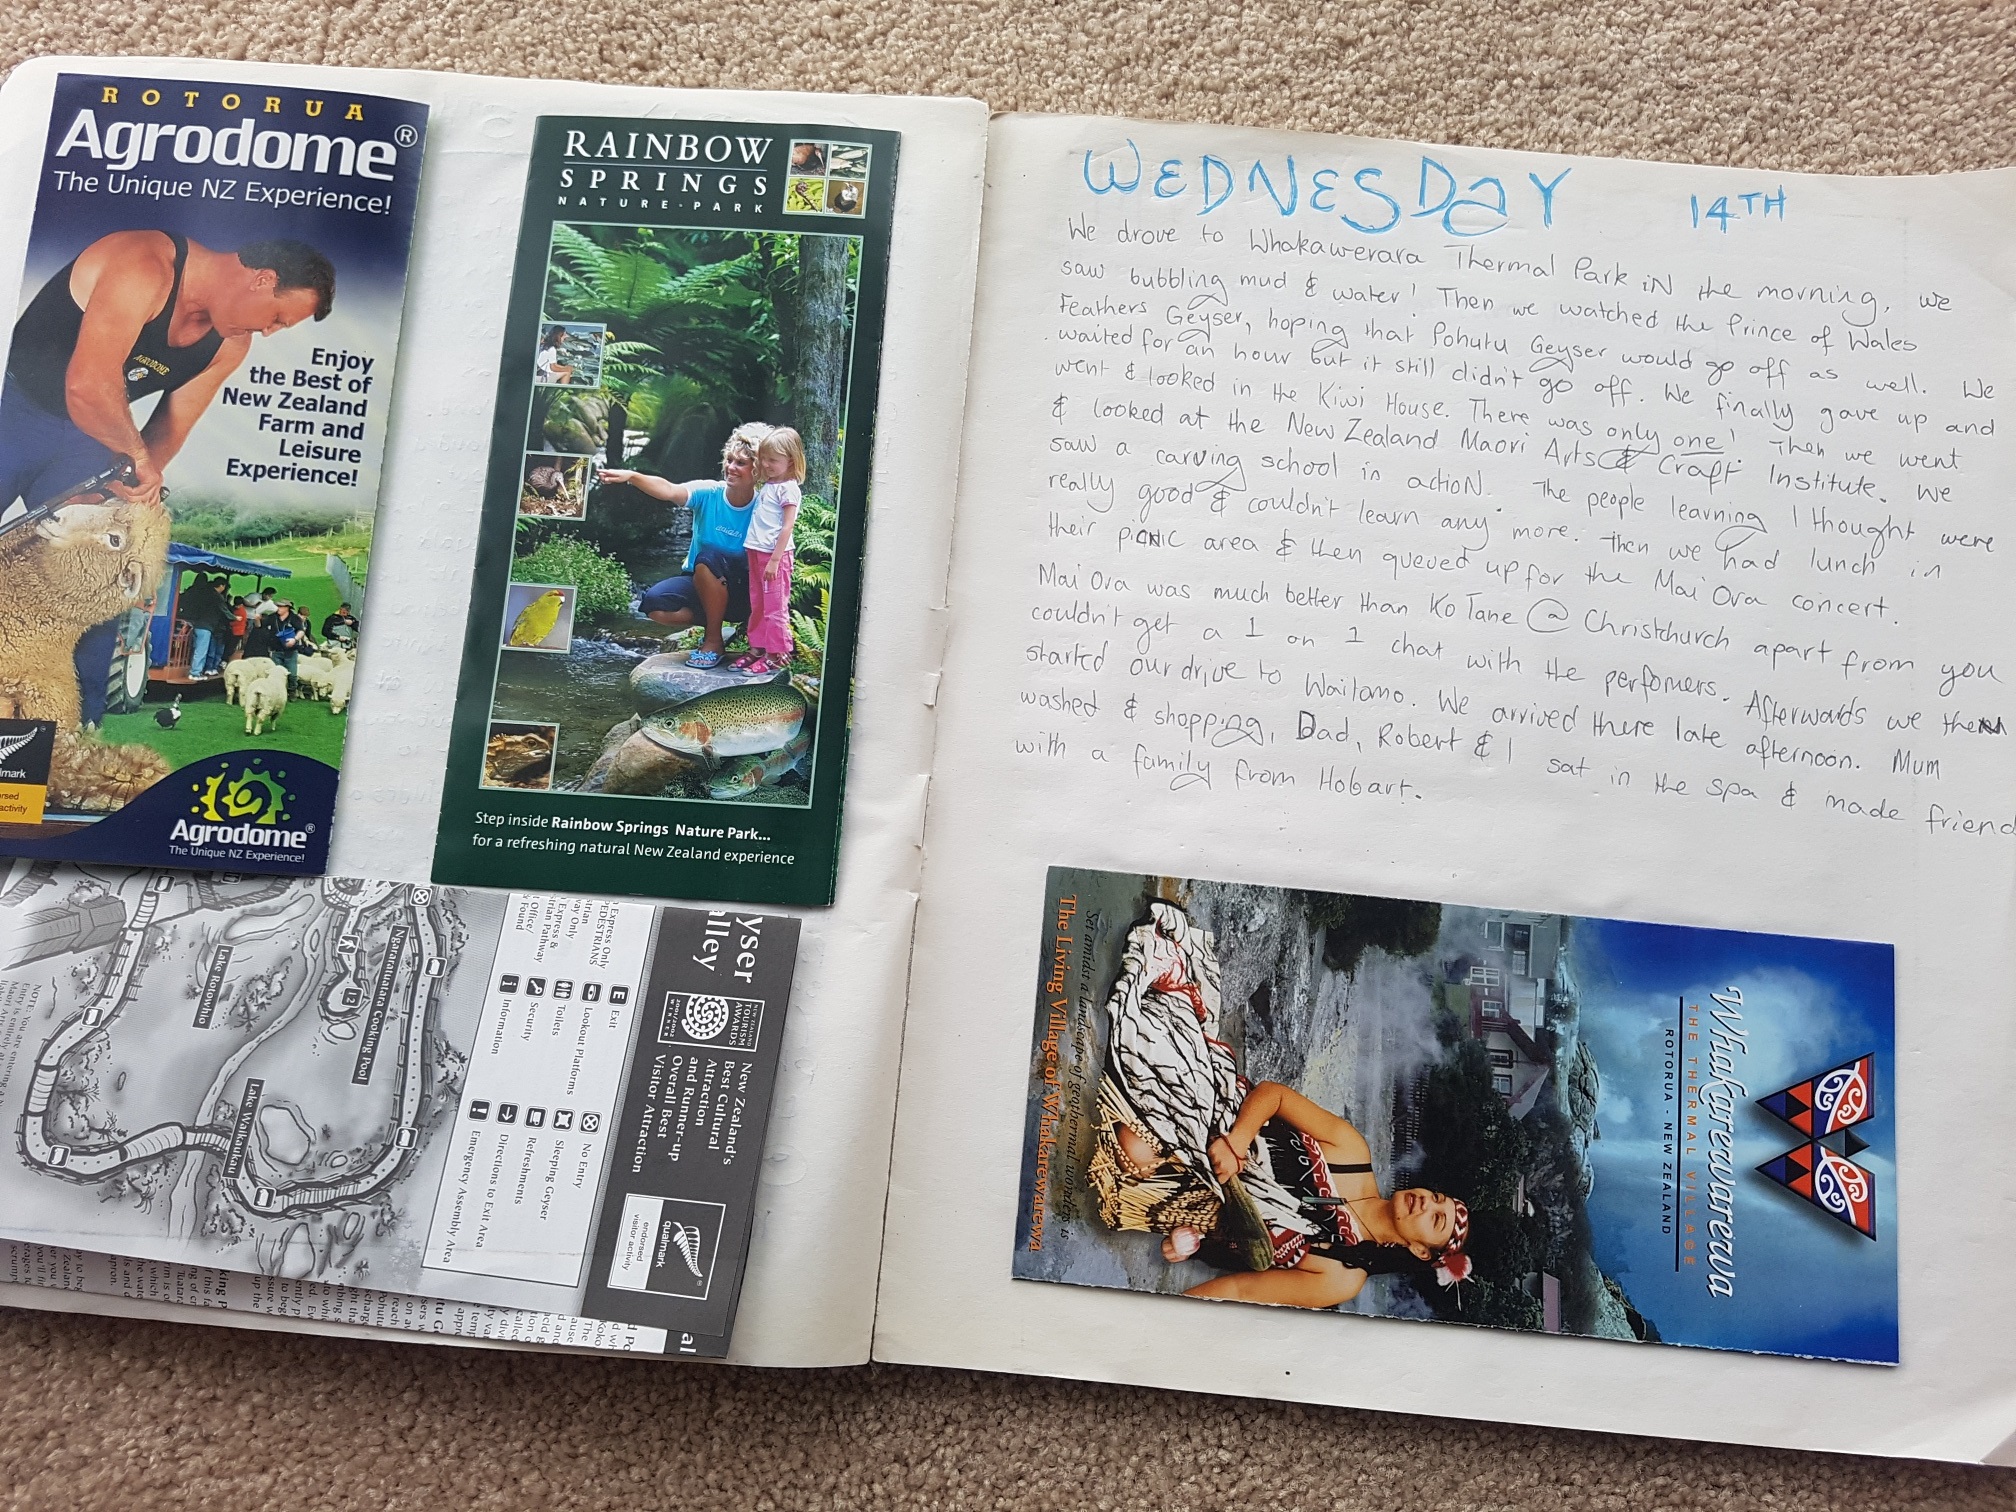 ROTORUA
Agrodome®
The Unique NZ Experience!
Enjoy
the Best of
New Zealand
Farm and
Leisure
Experience!
AGRODOME
mark
rsed
activity
Agrodome®
The Unique NZ Experience!
RAINBOW
SPRINGS
NATURE·PARK
Step inside Rainbow Springs Nature Park...
for a refreshing natural New Zealand experience
yser
alley
NEW ZEALAND
TOURISM
AWARDS
2001/2002
WINNER
New Zealand's
Best Cultural
Attraction
and Runner-up
Overall Best
Visitor Attraction
qualmark
endorsed
visitor activity
Express Only
PEDESTRIANS
trian
way Only
Express &
trian Pathway
Office/
Found
E Exit
Lookout Platforms
Toilets
Security
i Information
No Entry
Sleeping Geyser
Refreshments
Directions to Exit Area
! Emergency Assembly Area
Ngararatuatara Cooking Pool
12
Lake Rotowhio
Lake Waikaukau
NOTE: You are entering
WEDNESDAY 14TH
We drove to Whakawerara Thermal Park iN the morning, we
saw bubbling mud & water! Then we watched the Prince of Wales
Feathers Geyser, hoping that Pohutu Geyser would go off as well. We
waited for an hour but it still didn't go off. We finally gave up and
went & looked in the Kiwi House. There was only one! Then we went
& looked at the New Zealand Maori Arts & Craft Institute. We
saw a carving school in action. The people learning I thought were
really good & couldn't learn any more. Then we had lunch in
their picnic area & then queued up for the Mai Ora concert.
Mai Ora was much better than Ko Tane @ Christchurch apart from you
couldn't get a 1 on 1 chat with the perfomers. Afterwards we then
started our drive to Waitomo. We arrived there late afternoon. Mum
washed & shopping, Dad, Robert & I sat in the spa & made friend
with a family from Hobart.
Whakarewarewa
THE THERMAL VILLAGE
ROTORUA - NEW ZEALAND
Set amidst a landscape of geothermal wonders is
The Living Village of Whakarewarewa